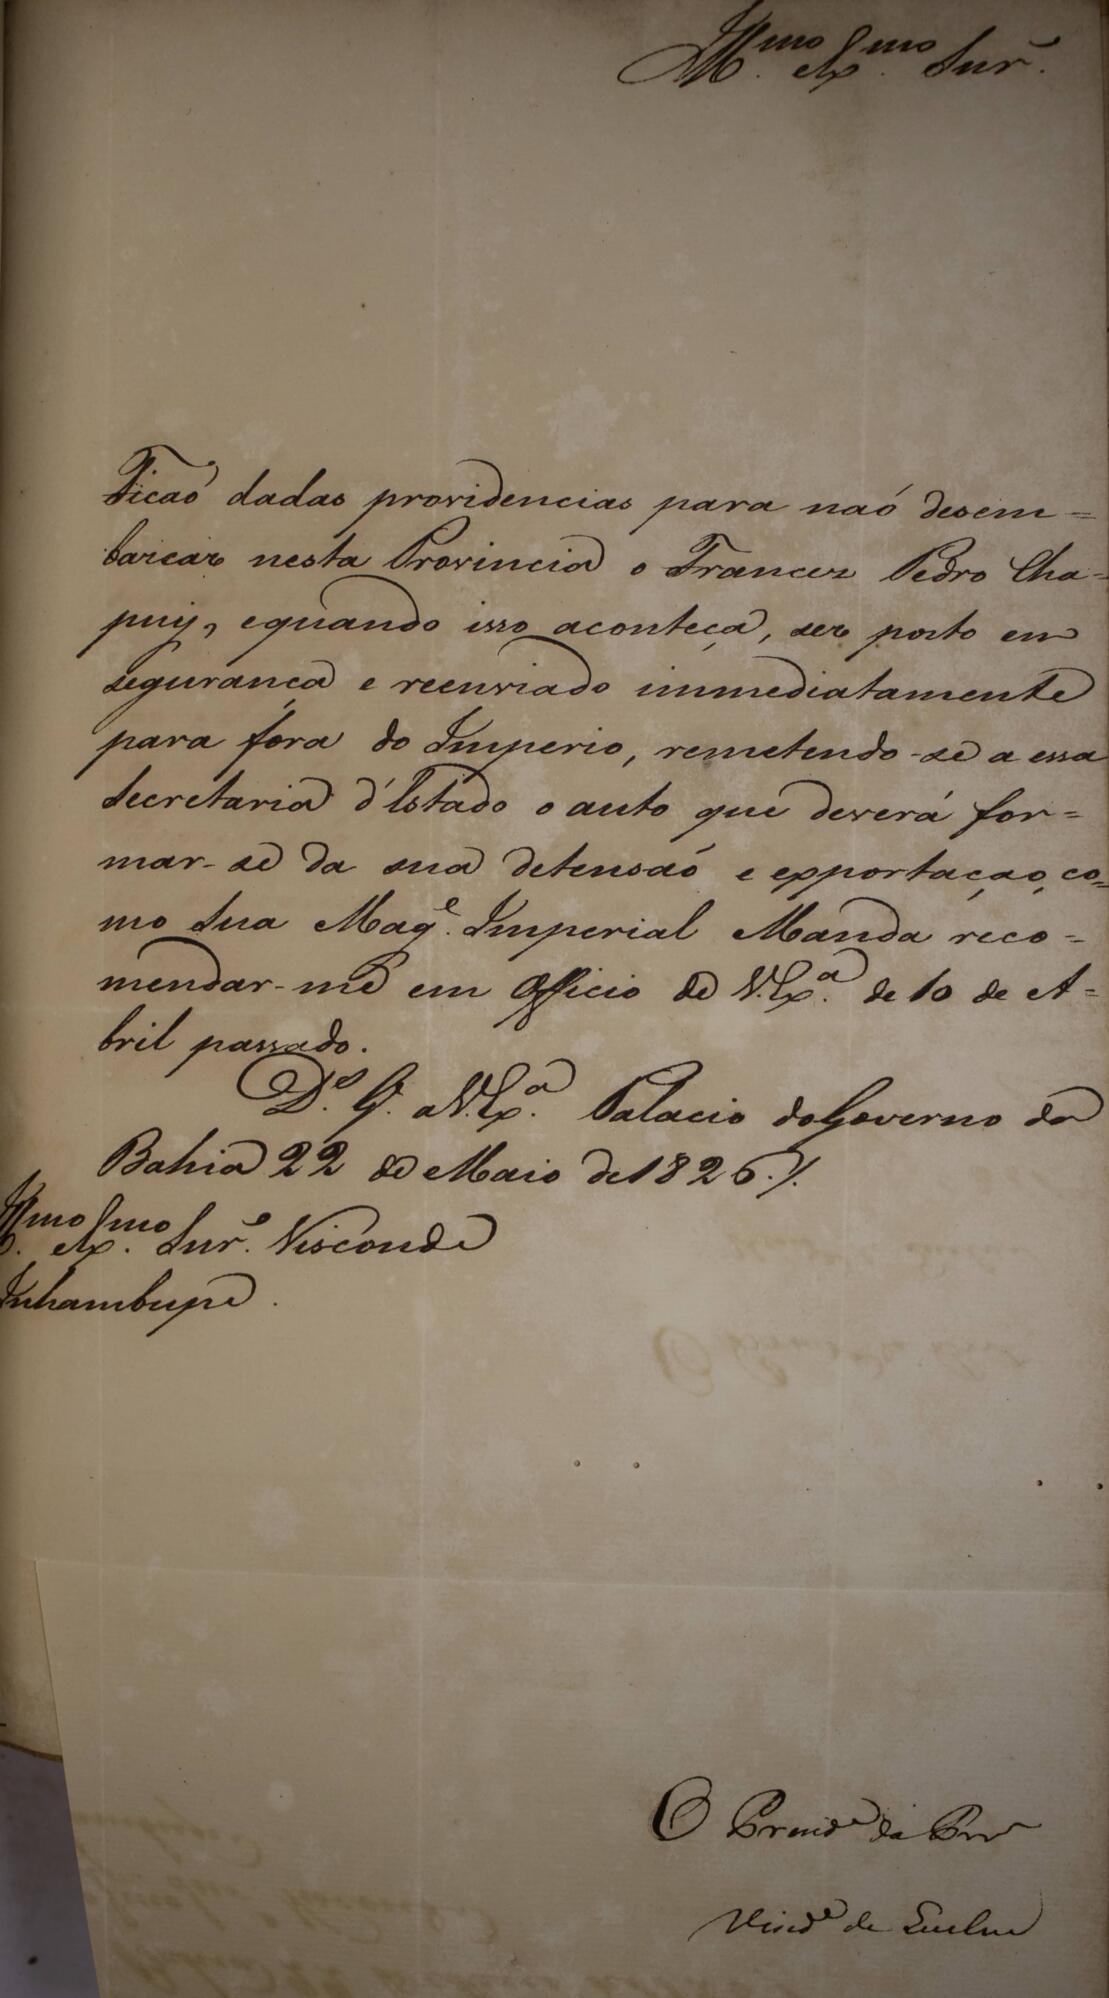 Ill.mo Ex.mo Snr.
Ficaõ dadas providencias para naõ desem=
barcar nesta Provincia o Francez Pedro Cha=
puy, e quando isso aconteça, ser posto em
segurança e reenviado immediatamente
para fóra do Imperio, remetendo-se a essa
Secretaria d'Estado o auto que deverá for=
mar-se da sua detensaõ e exportaçaõ, co=
mo Sua Mag.e Imperial Manda reco=
mendar-me em Officio de V. Ex.a de 10 de A=
bril passado.
D.s G. a V. Ex.a Palacio do Governo da
Bahia 22 de Maio de 1826./.
Ill.mo Ex.mo Snr. Visconde
Inhambupe.
O Presid.e da Prov
Visd.e de